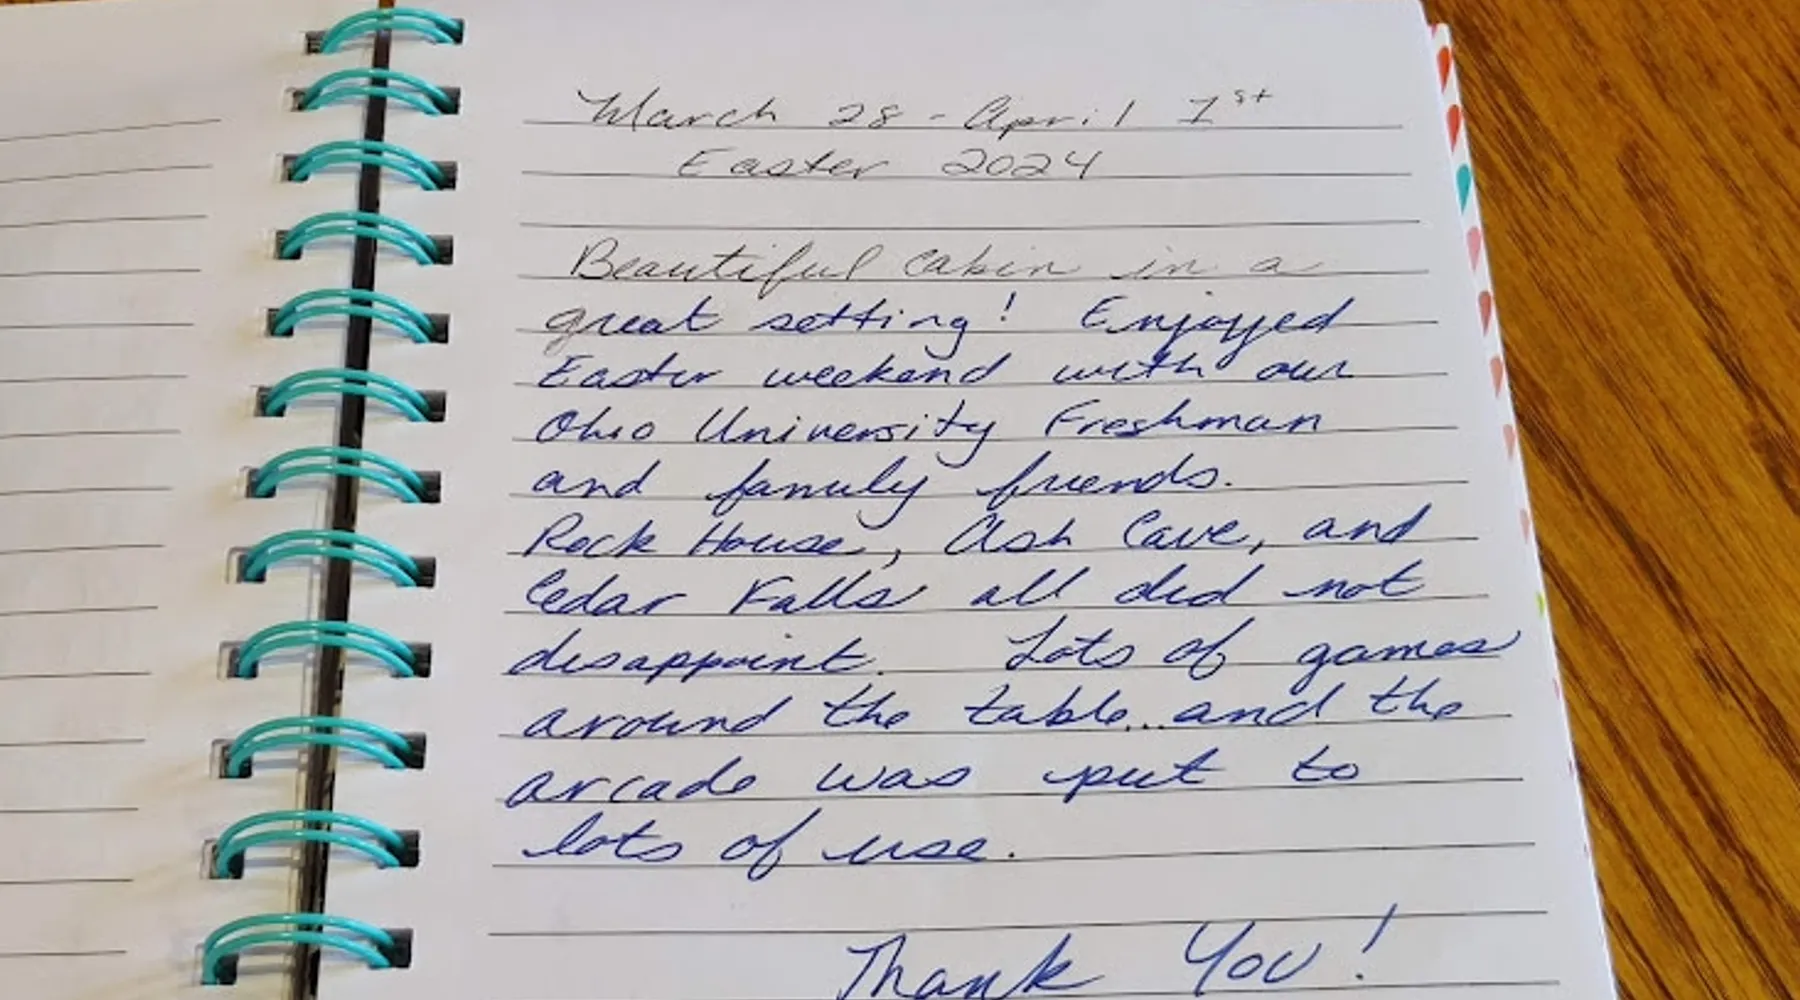 March 28 - April 1st
Easter 2024
Beautiful cabin in a
great setting! Enjoyed
Easter weekend with our
Ohio University Freshman
and family friends.
Rock House, Ash Cave, and
Cedar Falls all did not
disappoint. Lots of games
around the table... and the
arcade was put to
lots of use.
Thank You!